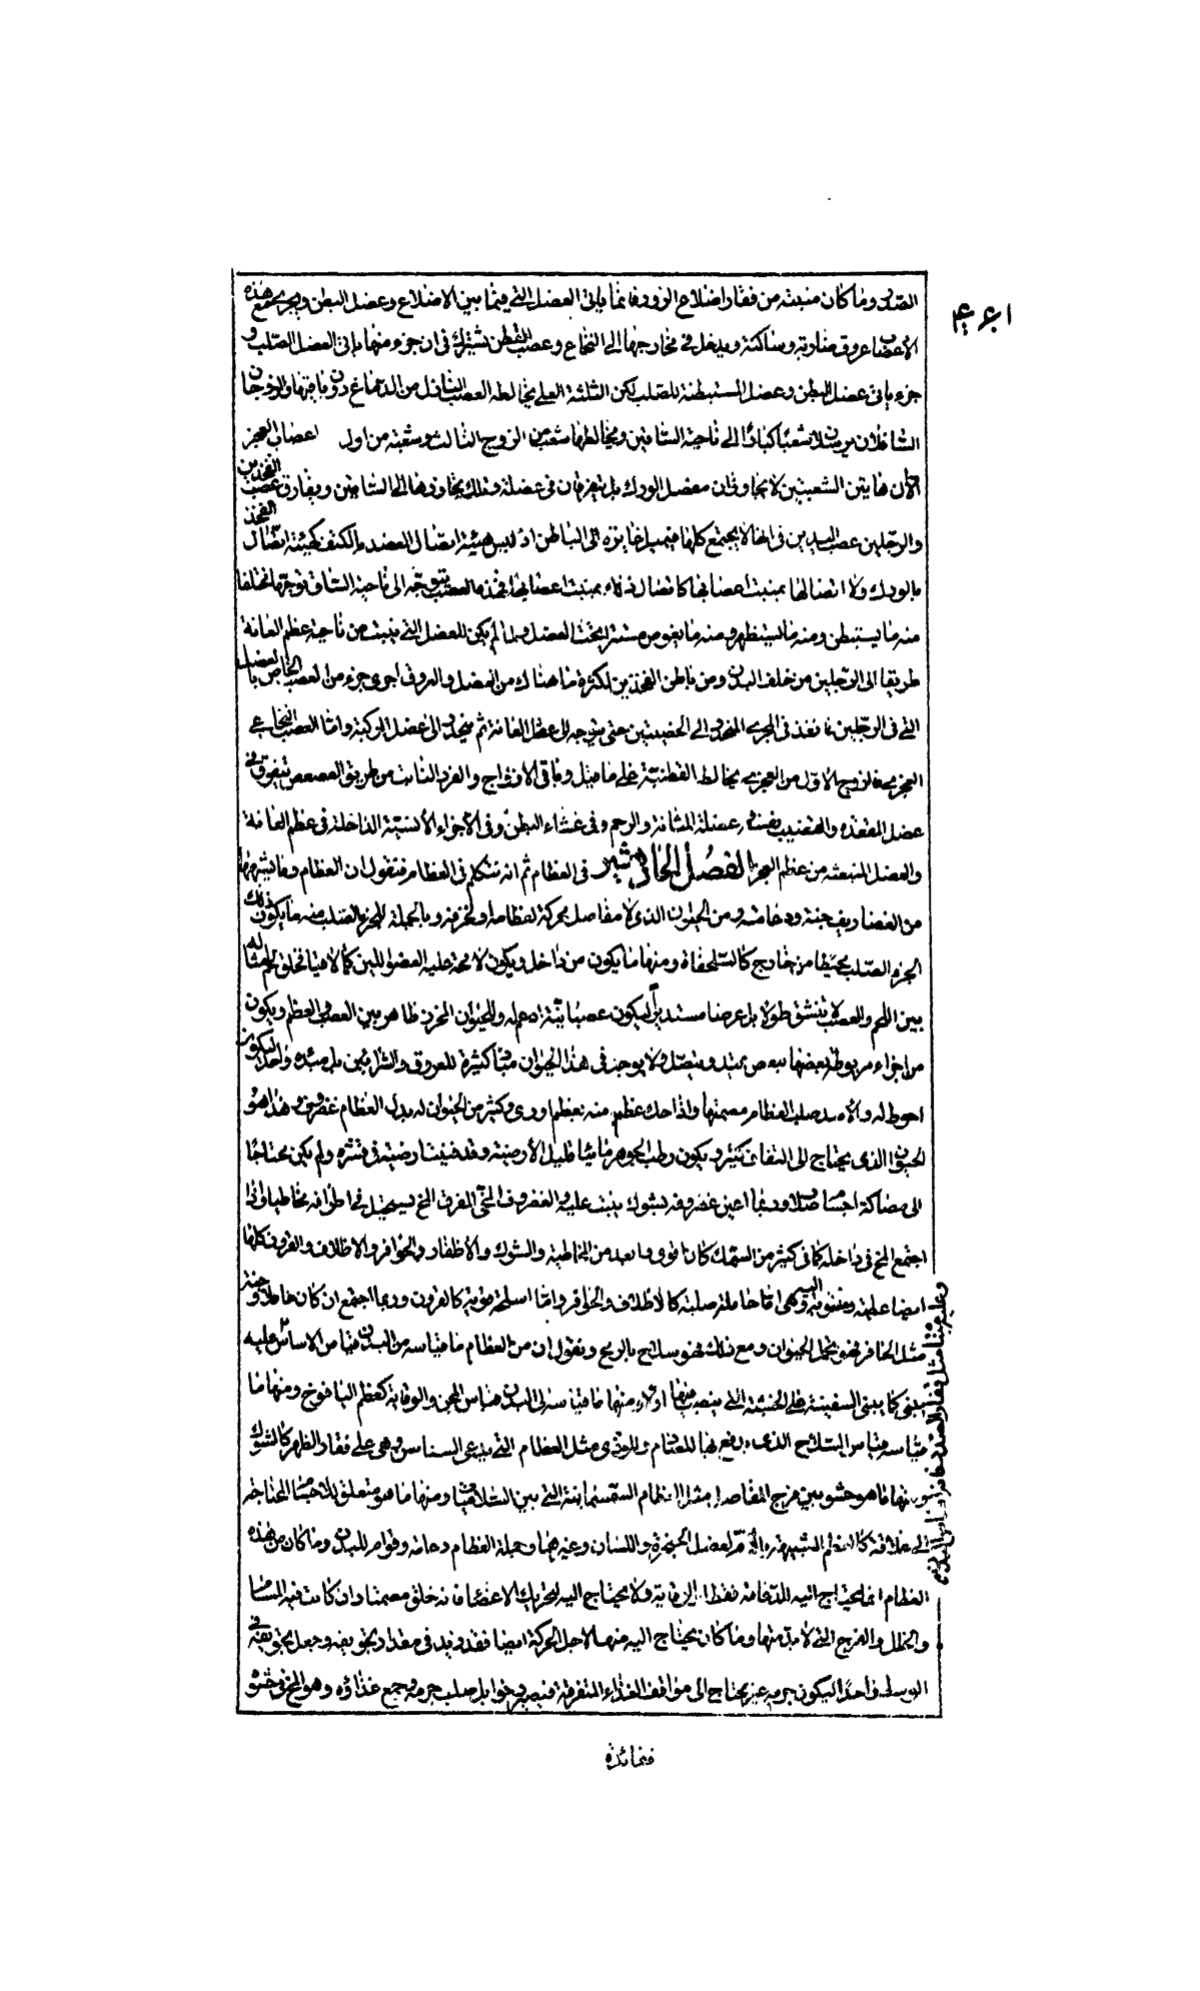 الصدر وما كان منبته من فقار اضلاع الزور فانما ياتى العضل التى فيما بين الاضلاع وعضل البطن ويجرى مع هذه
الأعصاب عروق ضاربة وساكنة ويدخل فى مخارجها الى النخاع وعصب القطن تشترك فى ان جزء منها ياتى العضل الصلب و
جزء ياتى عضل البطن وعضل المستبطنة للصلب لكن الثلثة العلى يخالطه العصب النازل من الدماغ دون باقيها والزوجان
السافلان يرسلان شعبا كبارا الى ناحية الساقين ويخالطها شعب من الزوج الثالث وشعبة من اول اعصاب العجز
الا ان هاتين الشعبتين لا يجاوزان مفصل الورك بل يتفرقان فى عضله وتلك يجاوزها الى الساقين ويفارق عصب الفخذين
والرجلين عصب اليدين فى انها لا يجتمع كلها فيميل غايرة الى الباطن اذ ليس هيئة اتصال العضد بالكتف كهيئة اتصال الفخذ
بالورك ولا اتصالها بمنبت اعصابها كاتصال ذلك بمنبت اعصابها فهذه العصب يتوجه الى ناحية الساق توجها مختلفا
منه ما يستبطن ومنه ما يستظهر ومنه ما يغوص مستترا تحت العضل ولما لم يكن للعضل التى ينبت من ناحية عظم العانة
طريقا الى الرجلين من خلف البدن ومن باطن الفخذين لكثرة ما هناك من العضل والعروق اجرى جزء من العصب الخاص بالعضل
التى فى الرجلين فانفذ فى المجرى المنحدر الى الخصيتين حتى يتوجه الى عضل العانة ثم ينحدر الى عضل الركبة واما العصب النخاعى
العجزى فالزوج الاول من العجزى يخالط القطنية على ما قيل وباقى الازواج والفرد النابت من طريق العصعص يتفرق فى
عضل المقعدة والقضيب نفسه و عضلة المثانة والرحم وفى غشاء البطن وفى الأجزاء الأنسية الداخلة فى عظم العانة
والعضل المنبعثه من عظم العجز الفصل الحادى عشر فى العظام ثم انه نتكلم فى العظام فنقول ان العظام وما يشبهها
من الغضاريف جنة ودعامة ومن الحيوان الذى لا مفاصل بحركة لعظامه او لخزفه وبالجملة للجزء الصلب منه ما يكون ذلك
الجزء الصلب محيطا من خارج كالسلحفاة ومنها ما يكون من داخل ويكون لا محة عليه العضو اللين كمالاقيا فخلق لهم مثاله
بين اللحم والعصب لا ينشق طولا بل عرضا مستديرا ليكون عصبانية له وللحيوان المخزن ظاهر بين العصب والعظم ويكون
من اجزاء مربوطة بعضها ببعض يمتد ويتصل ولا يوجد فى هذا الحيوان مبدأ كثيرة للعروق والشرائين بل مبدءه واحد ليكون
احوط له والأسد صلب العظام مصمتها واذا حك عظم منه بعظم اورى وكثير من الحيوان له بدل العظام غضروف وهذا هو
الحيوان الذى يحتاج الى التفاف كثير ويكون رطب الجوهر مائيا قليل الأرضية وقد خفيت ارضيته فى قشره ولم يكن محتاجا
الى مصاكة اجسام صلاب وربما اعين غضروفه بشوك ينبت عليه والغضروف المخى المفرق المخ يستحيل فى اطرافه مخاطيا واذا
اجتمع المخ فى داخله كما فى كثير من السمك كان اقوى وابعد من المخاطية والشوك والأظفار والحوافر والاظلاف والقرون كلها
ايضا عظمية ومنسوبة اليه وهى اما حاملة صلبة كالاظلاف والحوافر واما اسلحة موقية كالقرون وربما اجتمع ان كان حاملا وجنة
مثل الحافر فهو يحمل الحيوان ومع ذلك فهو سلاح بالرمح ونقول ان من العظام ما قياسه من البدن قياس الاساس عليه
يبنى كما يبنى السفينة على الخشبة التى ينصب فيها اولا ومنها ما قياسه الى البدن قياس المجن والوقاية كعظم اليافوخ ومنها ما
قياسه قياس السلاح الذى يدفع به المصادم والمؤذى مثل العظام التى يدعى السناسن وهى على فقار الظهر كالشوك
ومنها ما هو حشو بين فرج المفاصل مثل العظام السمسمانية التى بين السلاميات ومنها ما هو متعلق للأجسام المحتاجة
الى علاقة كالعظم الشبيه باللام لعضل الحنجرة واللسان وغيرهما وجملة العظام دعامة وقوام للبدن وما كان من هذه
العظام انما يحتاج اليه للدعامة فقط او للوقاية ولا يحتاج اليه لتحريك الاعضاء فانه خلق مصمتا وان كانت فيه المسام
والخلل والفرج التى لا بد منها وما كان يحتاج اليه منها لاجل الحركة ايضا فقد زيد فى مقدار تجويفه وجعل تجويفه فى
الوسط واحدا ليكون جرمه غير محتاج الى مواقف الغذاء المتفرقة فيصير رخوا بل صلب جرمه وجمع غذاؤه وهو المخ فى حشوه
ففائدة